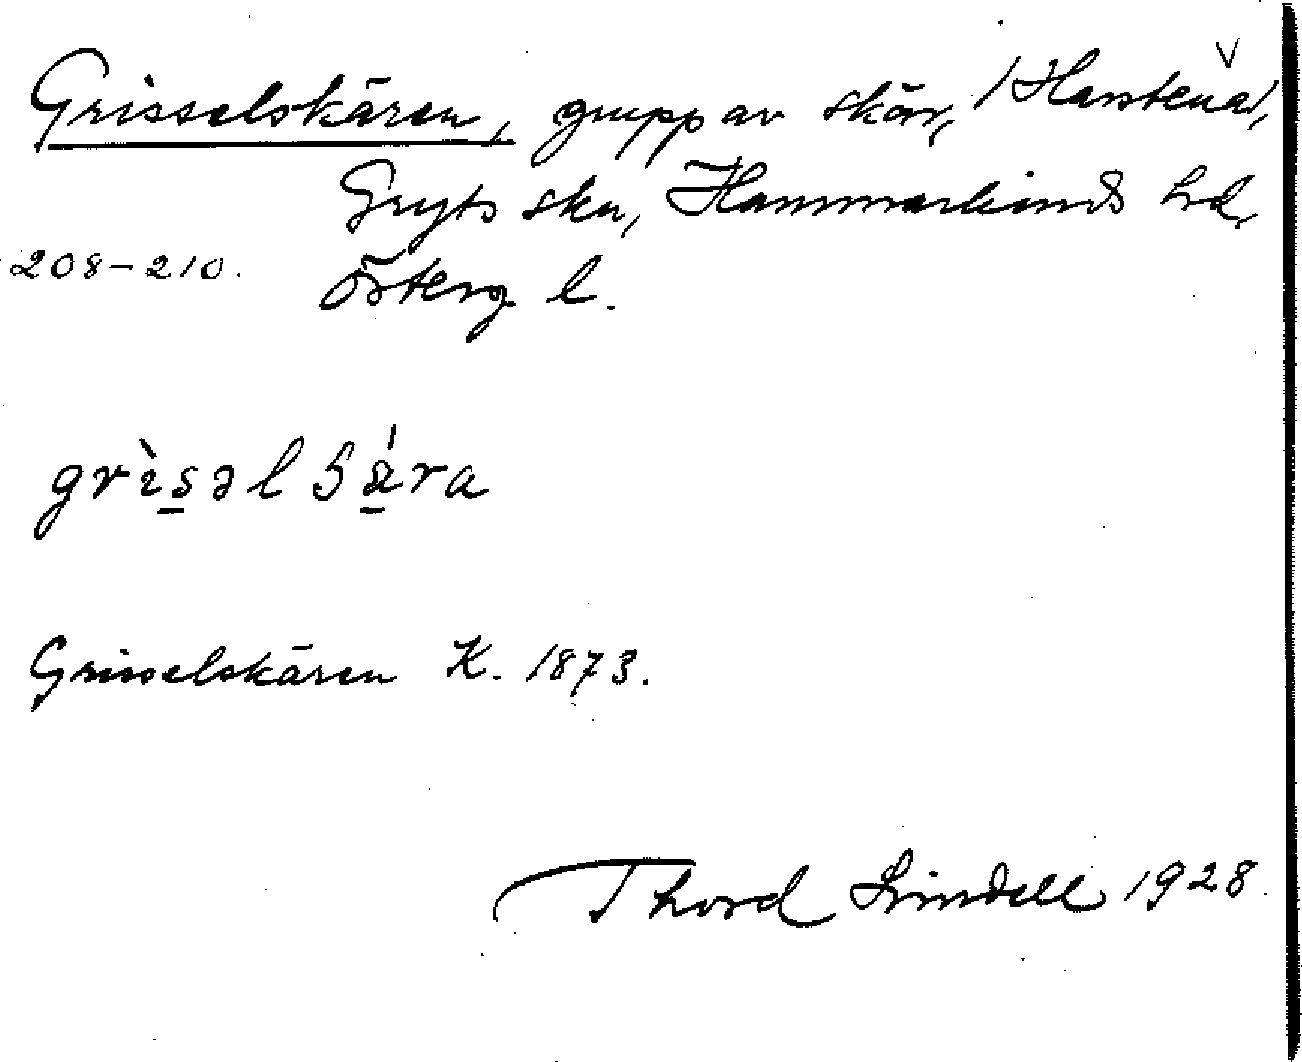 Grisselskären, grupp av skär, /Harstena/, v
Gryts skn, Hammarkinds hd,
208-210. Österg. l.
grìsəl
Grisselskären K. 1873.
Thord Lindell 1928.